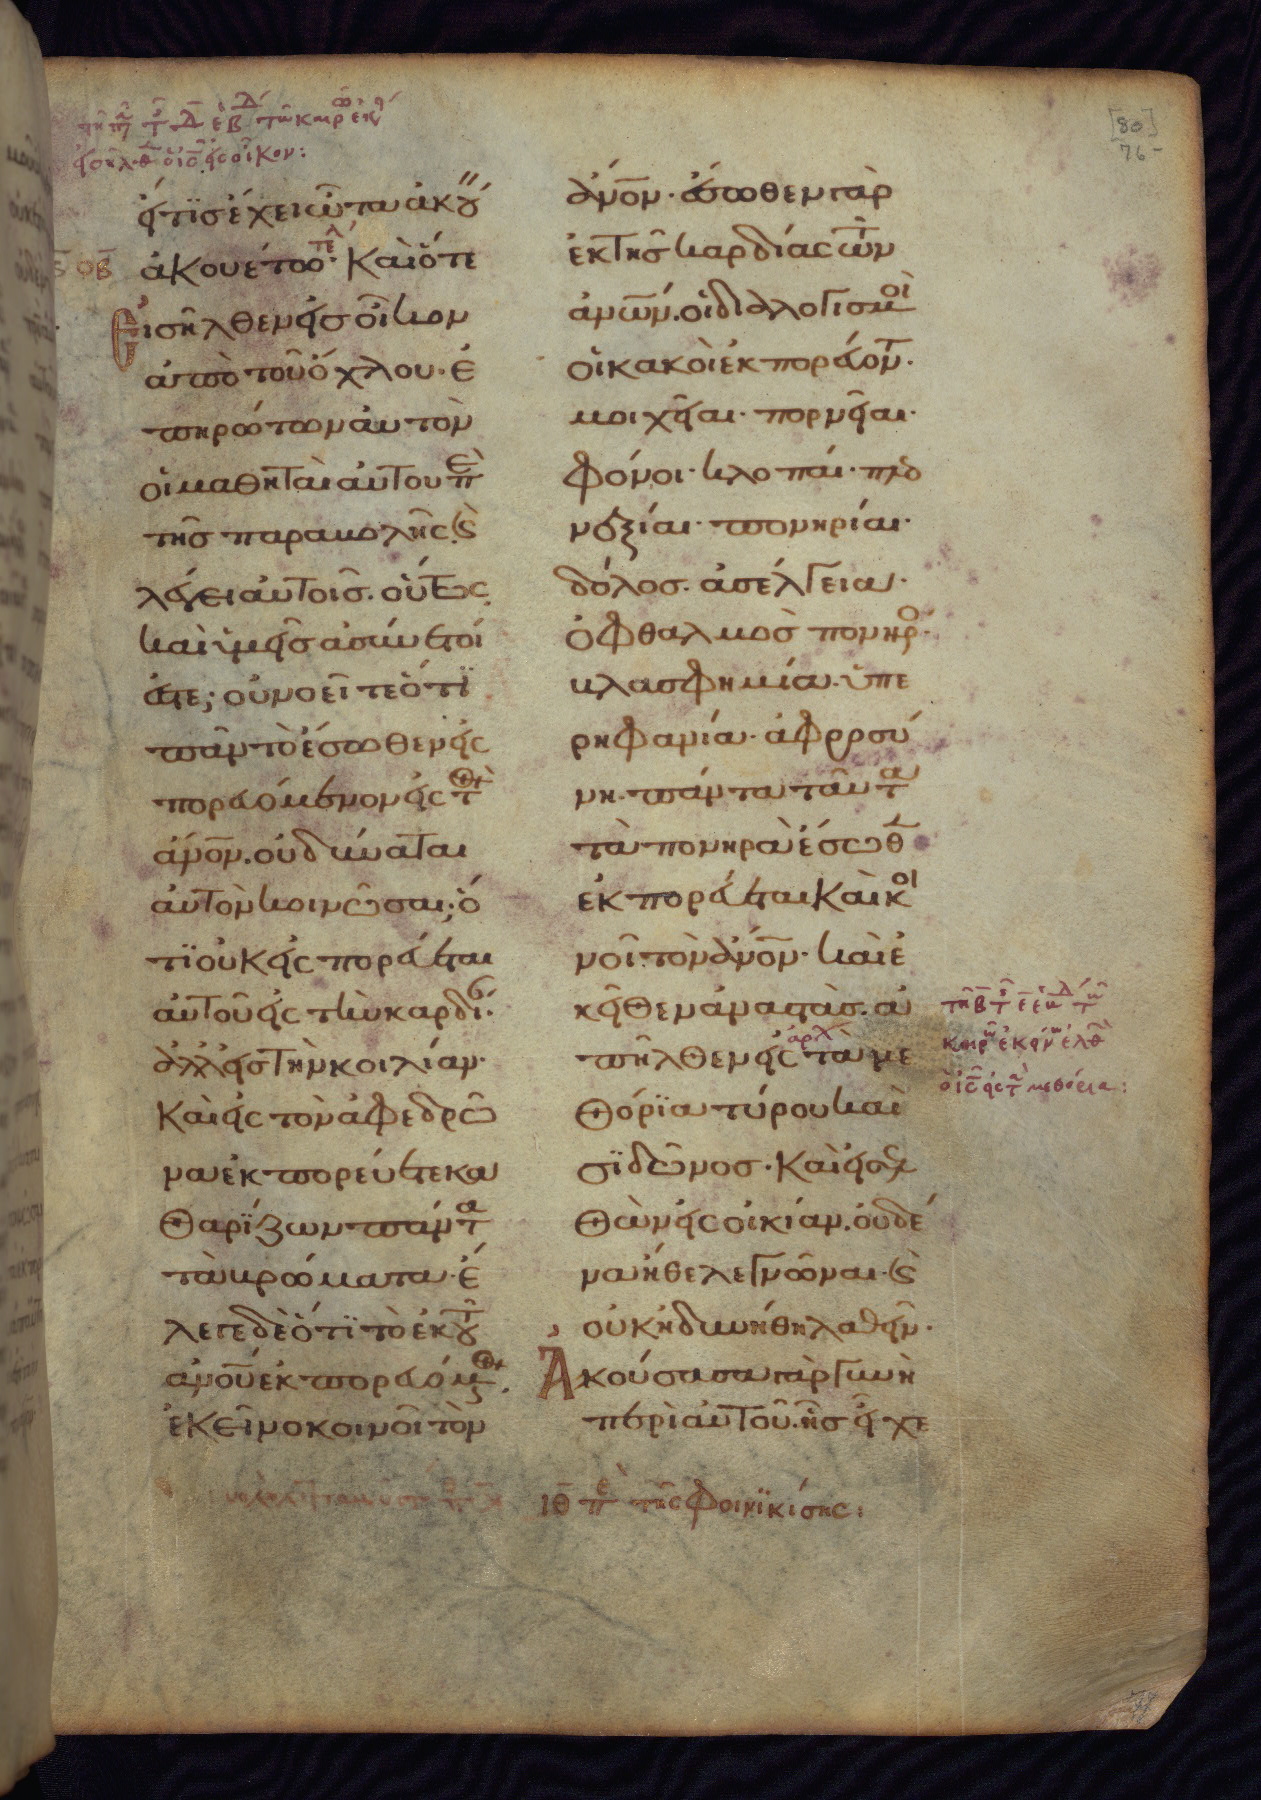 [80]
76
εἴ τις ἔχει ὦτα ἀκού
ἀκουέτω· τελ Καὶ ὅτε
Εἰσῆλθεν εἰς οἶκον
ἀπὸ τοῦ ὄχλου· ἐ
πηρώτων αὐτὸν
οἱ μαθηταὶ αὐτοῦ πε
τῆς παραβολῆς· ϗ
λέγει αὐτοῖς. οὕτως
καὶ ὑμεῖς ἀσύνετοί
ἐστε; οὐ νοεῖτε ὅτι
πᾶν τὸ ἔσωθεν εἰς
πορευόμενον εἰς τ
ἄνον. οὐ δύναται
αὐτὸν κοινῶσαι; ὅ
τι οὐκ εἰς πορεύεται
αὐτοῦ εἰς τὴν καρδί·
ἀλλ εἰς τὴν κοιλίαν·
Καὶ εἰς τὸν ἀφεδρῶ
να ἐκπορεύεται κα
θαρίζων πάντ
τὰ βρώματα· ἔ
λεγε δὲ ὅτι τὸ ἐκ τοῦ
ἀνοῦ ἐκπορευόμ
ἐκεῖνο κοινοῖ τὸν
ἄνον· ἔσωθεν γὰρ
ἐκ τῆς καρδίας τῶν
ἀνων. οἱ διαλογισμοὶ
οἱ κακοὶ ἐκπορεύοντ·
μοιχεῖαι· πορνεῖαι·
φόνοι· κλοπαί· πλεο
νεξίαι· πονηρίαι·
δόλος. ἀσέλγεια·
ὀφθαλμὸς πονηρο·
βλασφημία· ὑπε
ρηφανία· ἀφροσύ
νη· πάντα ταῦτα
τὰ πονηρὰ ἔσωθ
ἐκπορεύεται Καὶ κοι
νοῖ τὸν ἄνον· καὶ ἐ
κεῖθεν ἀναστὰς. ἀ
πῆλθεν εἰς ἀρχ τὰ με
θόρια τύρου καὶ
σιδῶνος· Καὶ εἰσελ
θὼν εἰς οἰκίαν. οὐδέ
να ἤθελε γνῶναι· ϗ
οὐκ ἠδυνήθη λαθεῖν·
Ἀκούσασα γὰρ γυνὴ
περὶ αὐτοῦ. ἧς εἶχε
ιθ πε τῆς Φοινικίσης: